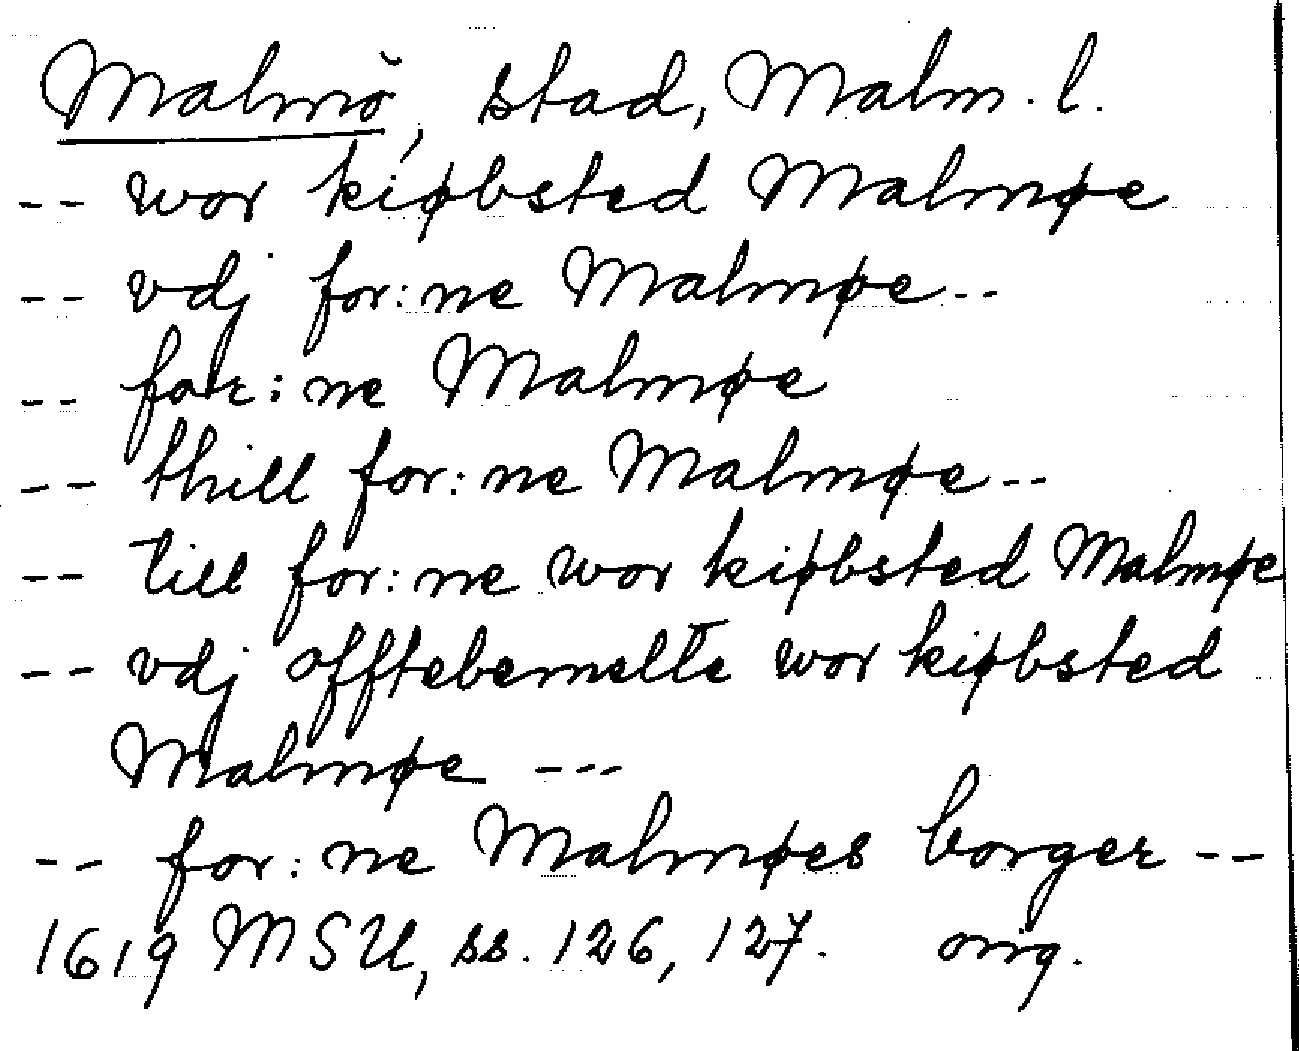 Malmö, stad, Malm. l.
-- wor kiøbsted Malmøe
-- vdj for:ne Malmøe --
-- for:ne Malmøe
-- thill for:ne Malmøe --
-- till for:ne wor kiøbsted Malmøe
-- vdj offtebemelte wor kiøbsted
Malmøe ---
-- for:ne Malmøes borger --
1619 MSU, ss. 126, 127. orig.